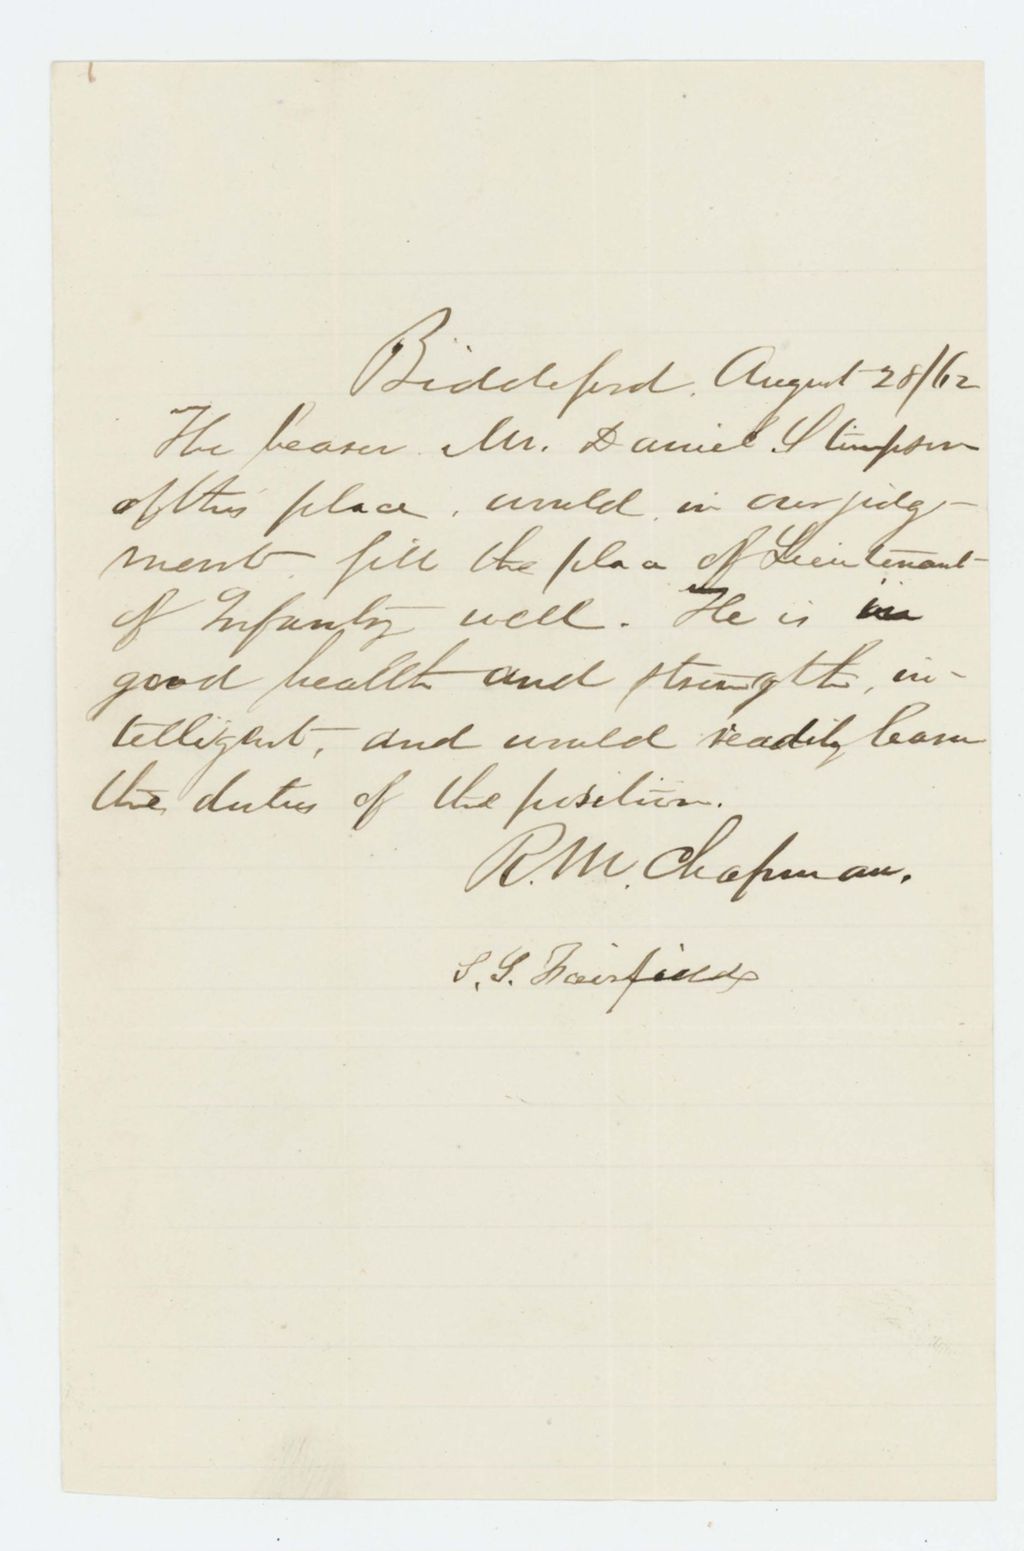 Biddeford, August 28/62
The bearer Mr. Daniel Stimpson
of this place, would, in our judg-
ment fill the place of Lieutenant
of Infantry well. He is in
good health and strength, in-
telligent, and would readily learn
the duties of the position.
R. M. Chapman.
S. G. Fairfield